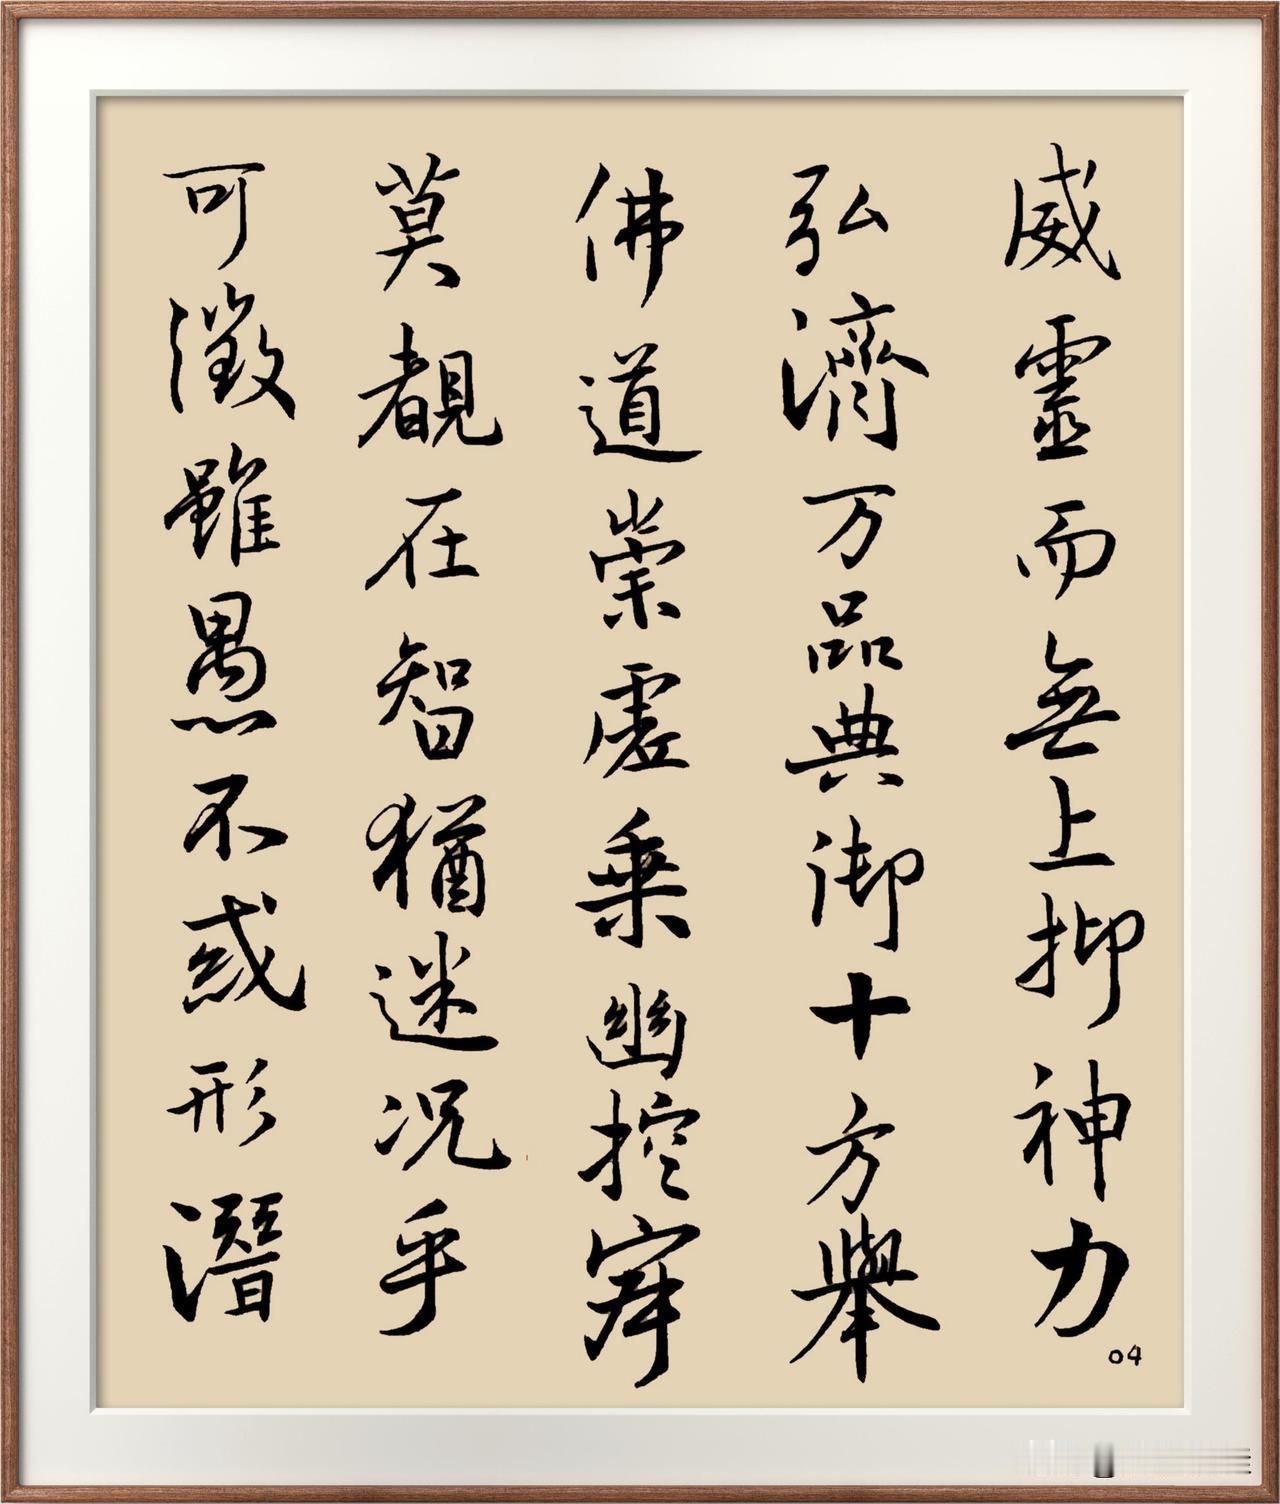 威靈而無上抑神力
弘濟万品典御十方舉
佛道崇虛乘幽控寂
莫覩在智猶迷况乎
可徵雖愚不惑形潛
04